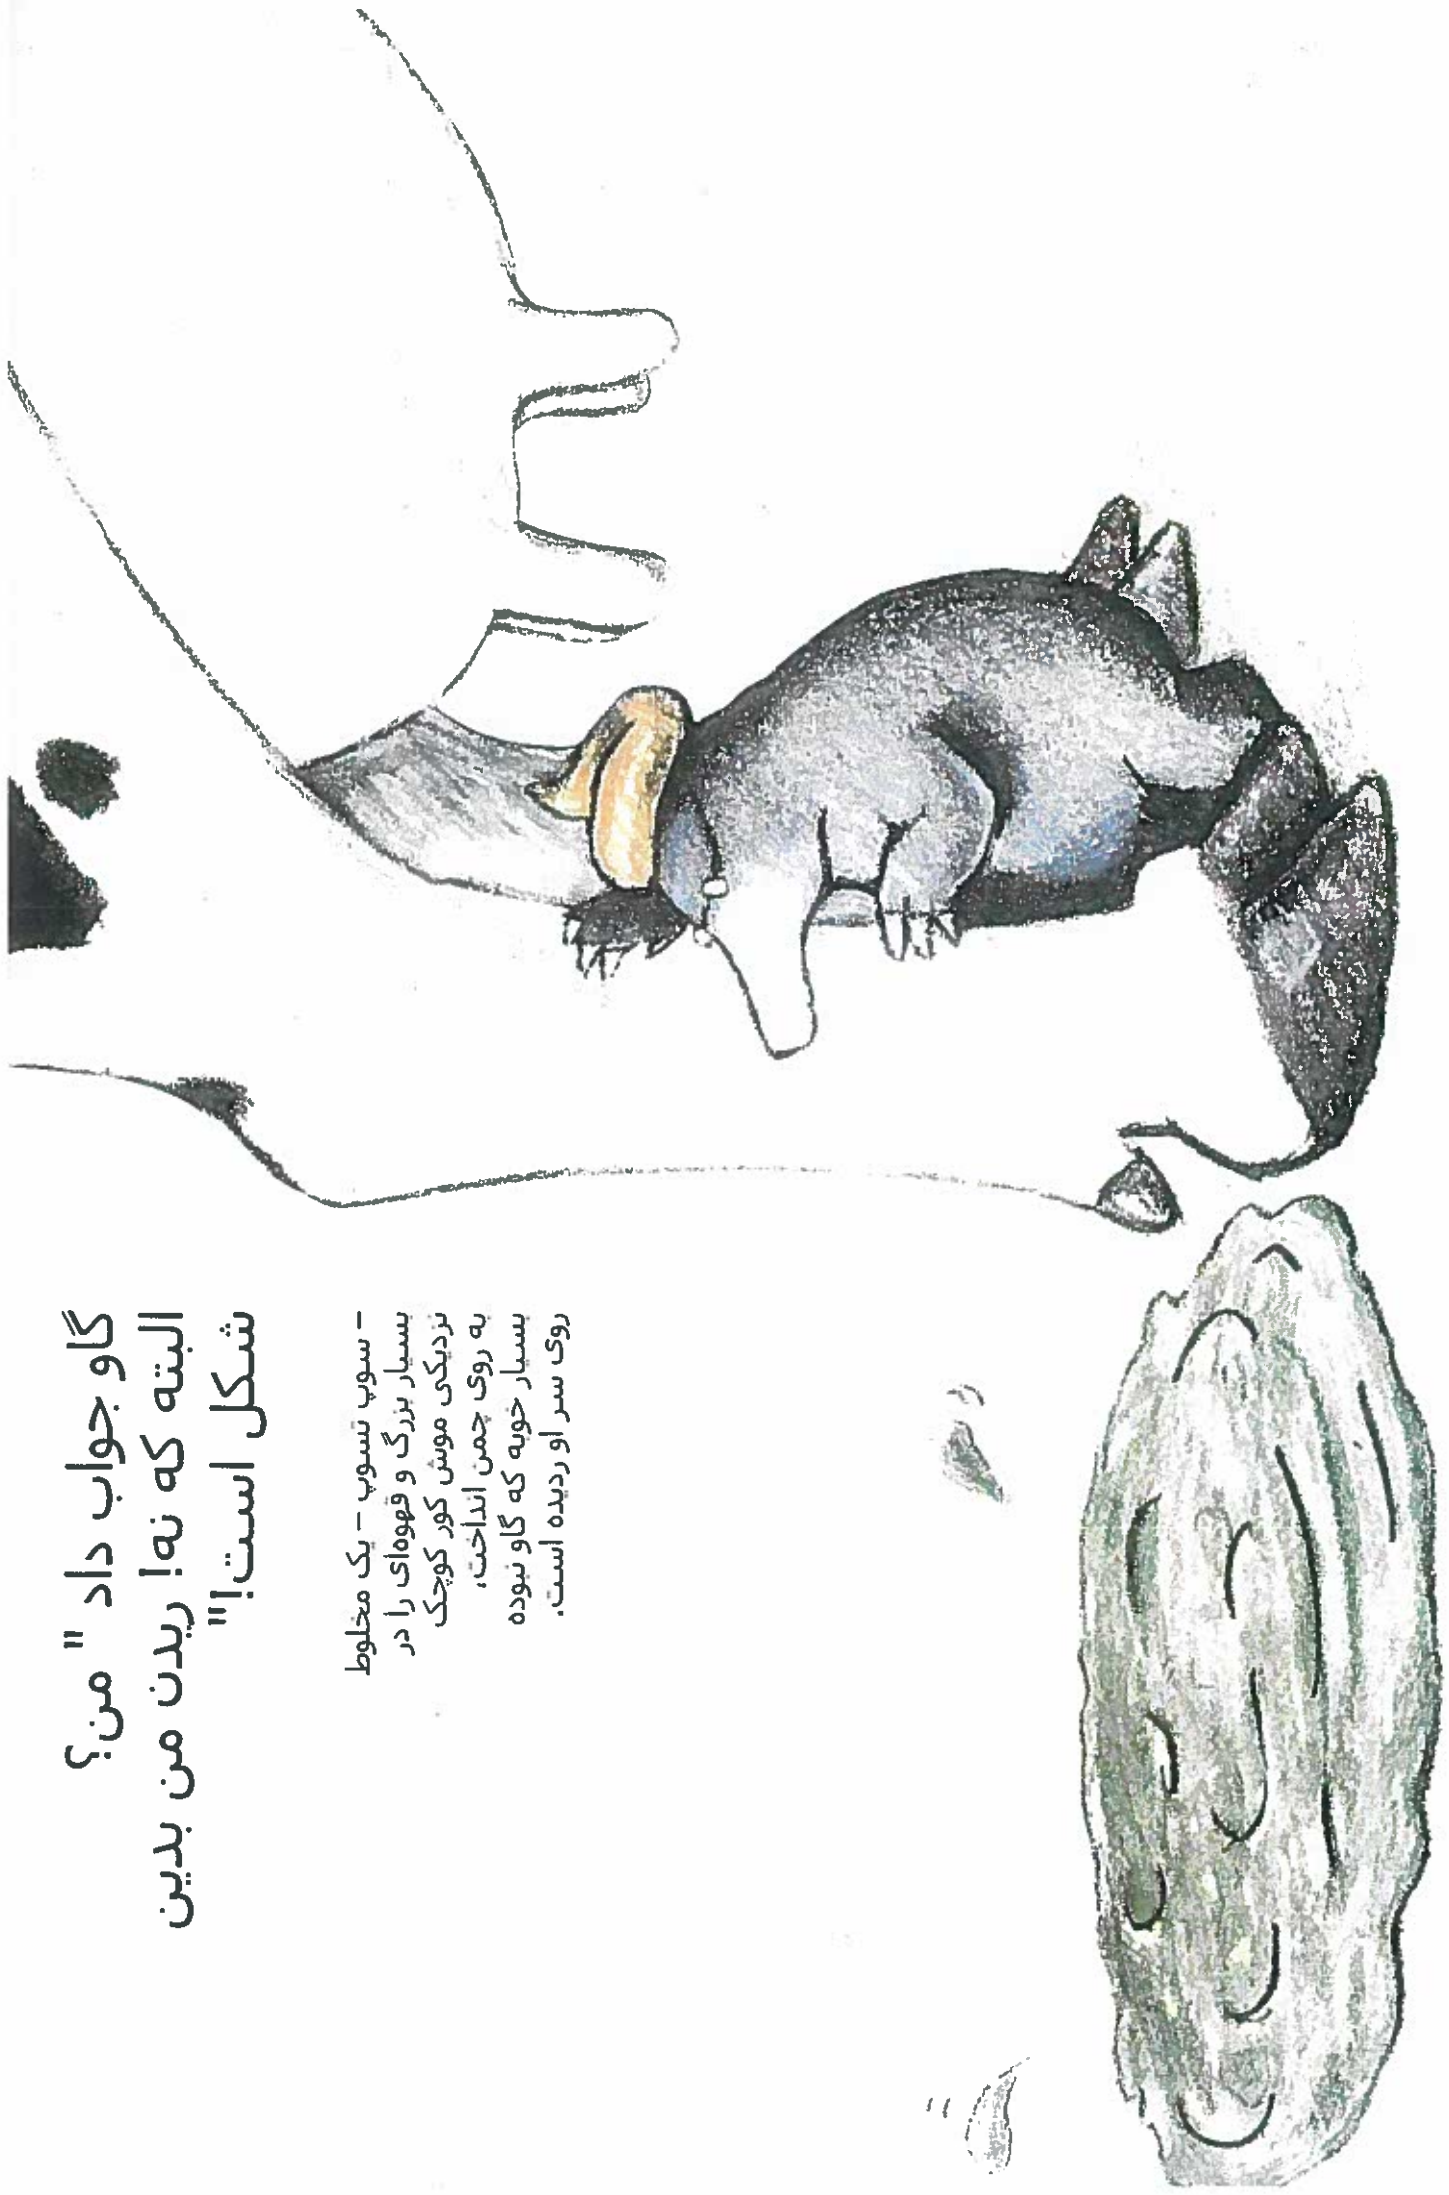 گاو جواب داد "من؟
البته که نه! ریدن من بدین
شکل است!"
- سوپ تسوپ - یک مخلوط
بسیار بزرگ و قهوه‌ای را در
نزدیکی موش کور کوچک
به روی چمن انداخت.
بسیار خوبه که گاو نبوده
روی سر او ردیده است.